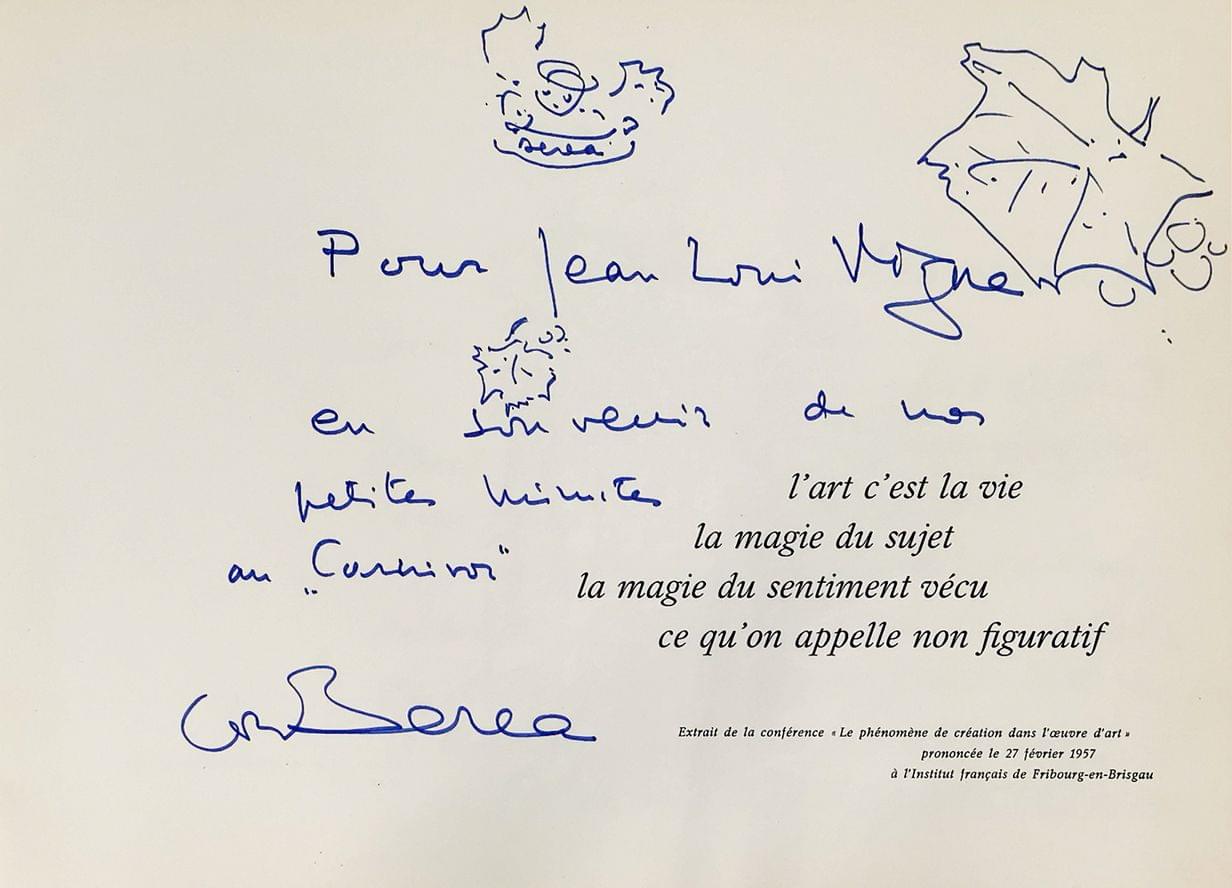 berea
Pour Jean Loui Vogne
en souvenir de nos
petites minutes
l'art c'est la vie
la magie du sujet
au „Carnivor"
la magie du sentiment vécu
ce qu'on appelle non figuratif
Berea
Extrait de la conférence « Le phénomène de création dans l'œuvre d'art »
prononcée le 27 février 1957
à l'Institut français de Fribourg-en-Brisgau